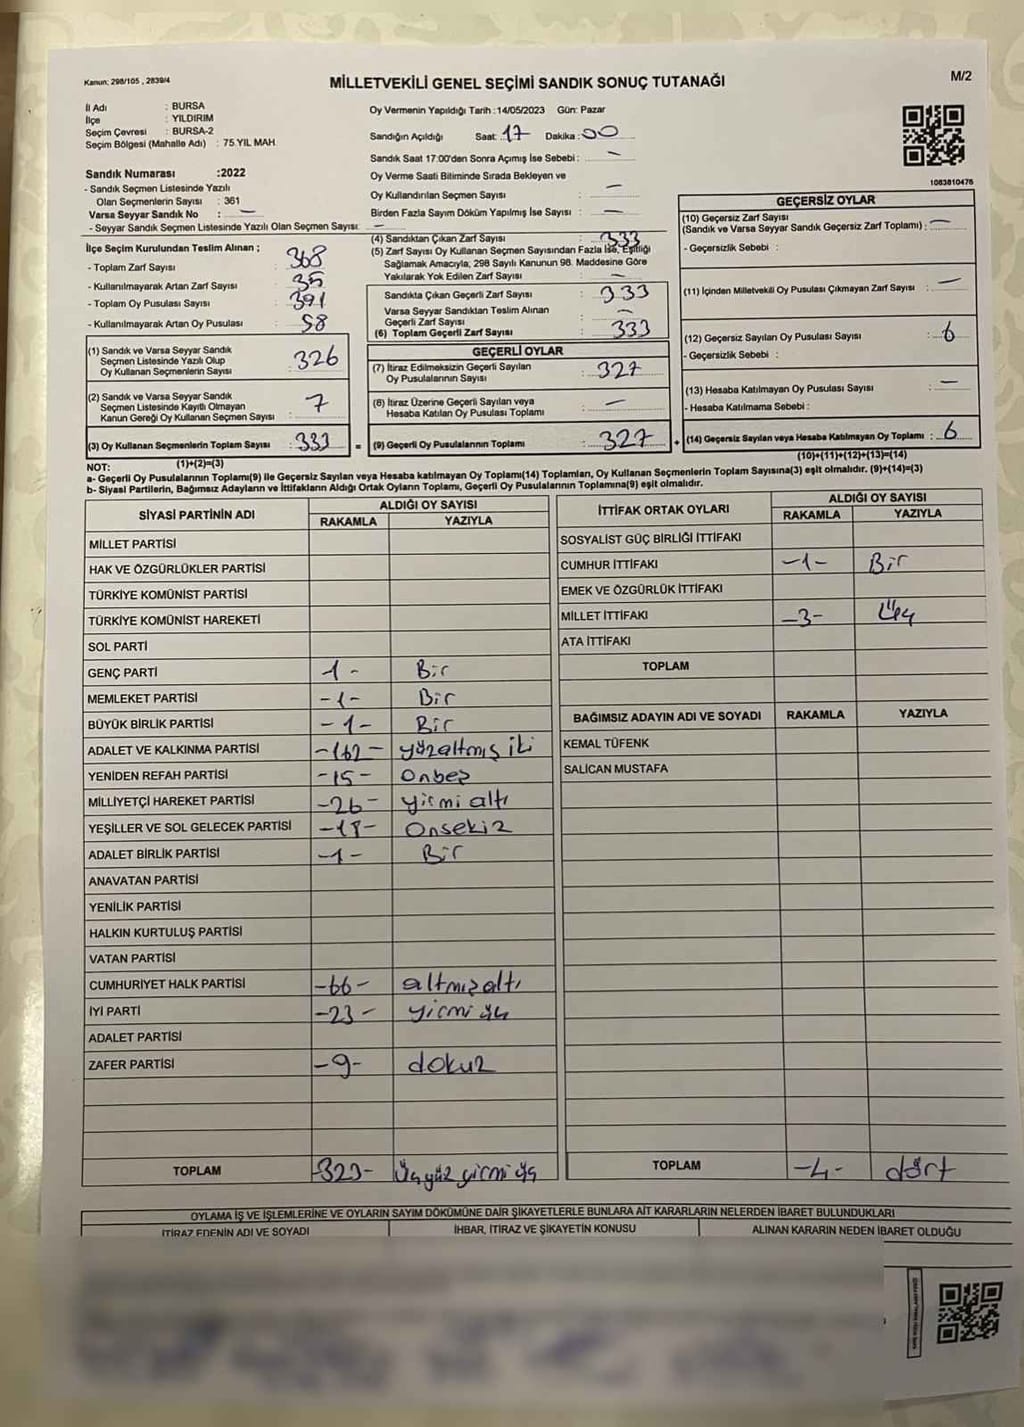 Kanun: 298/105 , 2839/4
MİLLETVEKİLİ GENEL SEÇİMİ SANDIK SONUÇ TUTANAĞI
M/2
İl Adı : BURSA
İlçe : YILDIRIM
Seçim Çevresi : BURSA-2
Seçim Bölgesi (Mahalle Adı) : 75.YIL MAH.
Sandık Numarası :2022
- Sandık Seçmen Listesinde Yazılı
Olan Seçmenlerin Sayısı : 361
Varsa Seyyar Sandık No : —
- Seyyar Sandık Seçmen Listesinde Yazılı Olan Seçmen Sayısı: —
İlçe Seçim Kurulundan Teslim Alınan ;
- Toplam Zarf Sayısı : 368
- Kullanılmayarak Artan Zarf Sayısı : 35
- Toplam Oy Pusulası Sayısı : 391
- Kullanılmayarak Artan Oy Pusulası : 58
(1) Sandık ve Varsa Seyyar Sandık
Seçmen Listesinde Yazılı Olup
Oy Kullanan Seçmenlerin Sayısı : 326
(2) Sandık ve Varsa Seyyar Sandık
Seçmen Listesinde Kayıtlı Olmayan
Kanun Gereği Oy Kullanan Seçmen Sayısı : 7
(3) Oy Kullanan Seçmenlerin Toplam Sayısı : 333 =
(1)+(2)=(3)
Oy Vermenin Yapıldığı Tarih :14/05/2023 Gün: Pazar
Sandığın Açıldığı Saat: 17 Dakika : 00
Sandık Saat 17:00'den Sonra Açımış İse Sebebi : —
Oy Verme Saati Bitiminde Sırada Bekleyen ve
Oy Kullandırılan Seçmen Sayısı : —
Birden Fazla Sayım Döküm Yapılmış İse Sayısı : —
(4) Sandıktan Çıkan Zarf Sayısı : 333
(5) Zarf Sayısı Oy Kullanan Seçmen Sayısından Fazla İse, Eşitliği
Sağlamak Amacıyla, 298 Sayılı Kanunun 98. Maddesine Göre
Yakılarak Yok Edilen Zarf Sayısı : —
Sandıkta Çıkan Geçerli Zarf Sayısı : 333
Varsa Seyyar Sandıktan Teslim Alınan
Geçerli Zarf Sayısı : —
(6) Toplam Geçerli Zarf Sayısı : 333
GEÇERLİ OYLAR
(7) İtiraz Edilmeksizin Geçerli Sayılan
Oy Pusulalarının Sayısı : 327
(8) İtiraz Üzerine Geçerli Sayılan veya
Hesaba Katılan Oy Pusulası Toplamı : —
(9) Geçerli Oy Pusulalarının Toplamı : 327 +
1083810476
GEÇERSİZ OYLAR
(10) Geçersiz Zarf Sayısı
(Sandık ve Varsa Seyyar Sandık Geçersiz Zarf Toplamı) : —
- Geçersizlik Sebebi :
(11) İçinden Milletvekili Oy Pusulası Çıkmayan Zarf Sayısı : —
(12) Geçersiz Sayılan Oy Pusulası Sayısı : 6
- Geçersizlik Sebebi :
(13) Hesaba Katılmayan Oy Pusulası Sayısı : —
- Hesaba Katılmama Sebebi :
(14) Geçersiz Sayılan veya Hesaba Katılmayan Oy Toplamı : 6
(10)+(11)+(12)+(13)=(14)
NOT:
a- Geçerli Oy Pusulalarının Toplamı(9) ile Geçersiz Sayılan veya Hesaba katılmayan Oy Toplamı(14) Toplamları, Oy Kullanan Seçmenlerin Toplam Sayısına(3) eşit olmalıdır. (9)+(14)=(3)
b- Siyasi Partilerin, Bağımsız Adayların ve İttifakların Aldığı Ortak Oyların Toplamı, Geçerli Oy Pusulalarının Toplamına(9) eşit olmalıdır.
SİYASİ PARTİNİN ADI ALDIĞI OY SAYISI
RAKAMLA YAZIYLA
MİLLET PARTİSİ
HAK VE ÖZGÜRLÜKLER PARTİSİ
TÜRKİYE KOMÜNİST PARTİSİ
TÜRKİYE KOMÜNİST HAREKETİ
SOL PARTİ
GENÇ PARTİ 1 - Bir
MEMLEKET PARTİSİ -1- Bir
BÜYÜK BİRLİK PARTİSİ -1- Bir
ADALET VE KALKINMA PARTİSİ -162- yüzaltmış iki
YENİDEN REFAH PARTİSİ -15- Onbeş
MİLLİYETÇİ HAREKET PARTİSİ -26- yirmi altı
YEŞİLLER VE SOL GELECEK PARTİSİ -18- Onsekiz
ADALET BİRLİK PARTİSİ -1- Bir
ANAVATAN PARTİSİ
YENİLİK PARTİSİ
HALKIN KURTULUŞ PARTİSİ
VATAN PARTİSİ
CUMHURİYET HALK PARTİSİ -66- altmışaltı
İYİ PARTİ -23- yirmi üç
ADALET PARTİSİ
ZAFER PARTİSİ -9- dokuz
TOPLAM -323- Üçyüz yirmi üç
İTTİFAK ORTAK OYLARI ALDIĞI OY SAYISI
RAKAMLA YAZIYLA
SOSYALİST GÜÇ BİRLİĞİ İTTİFAKI
CUMHUR İTTİFAKI -1- Bir
EMEK VE ÖZGÜRLÜK İTTİFAKI
MİLLET İTTİFAKI -3- Üç
ATA İTTİFAKI
TOPLAM
BAĞIMSIZ ADAYIN ADI VE SOYADI RAKAMLA YAZIYLA
KEMAL TÜFENK
SALİCAN MUSTAFA
TOPLAM -4- dört
OYLAMA İŞ VE İŞLEMLERİNE VE OYLARIN SAYIM DÖKÜMÜNE DAİR ŞİKAYETLERLE BUNLARA AİT KARARLARIN NELERDEN İBARET BULUNDUKLARI
İTİRAZ EDENİN ADI VE SOYADI İHBAR, İTİRAZ VE ŞİKAYETİN KONUSU ALINAN KARARIN NEDEN İBARET OLDUĞU